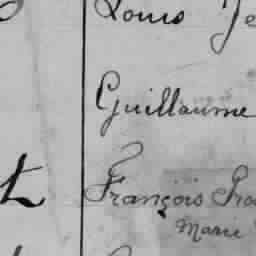 Louis
Guillaume
François
Marie